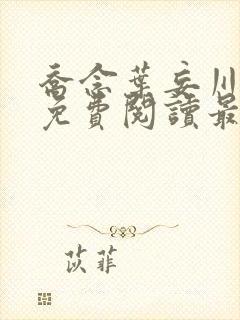 喬念葉妄川
免費閱讀最
苡菲